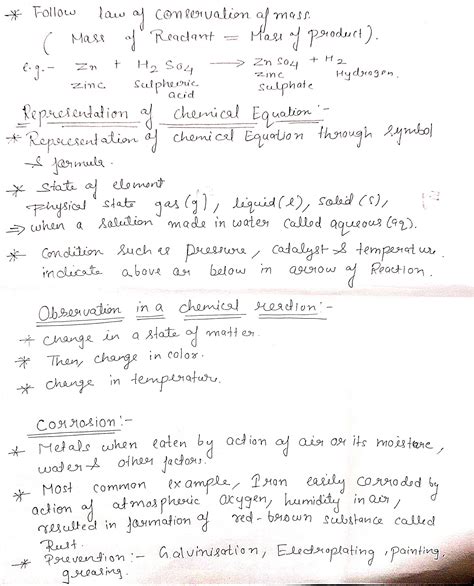 * Follow law of conservation of mass.
( Mass of Reactant = Mass of product).
e.g.- Zn + H2SO4 → ZnSO4 + H2
zinc sulpheric acid zinc sulphate Hydrogen.
Representation of chemical Equation :-
* Representation of chemical Equation through symbol
& formula.
* state of element
physical state gas (g), liquid (l), solid (s),
⇒ when a solution made in water called aqueous (aq).
* condition such as pressure, catalyst & temperature
indicate above or below in arrow of Reaction.
Observation in a chemical reaction :-
* change in a state of matter.
* Then, change in color.
* change in temperature.
Corrosion :-
* Metals when eaten by action of air or its moisture,
water & other factors.
* Most common example, Iron easily corroded by
action of atmospheric oxygen, humidity in air,
resulted in formation of red-brown substance called
Rust.
* Prevention :- Galvinisation, Electroplating, painting,
greasing.